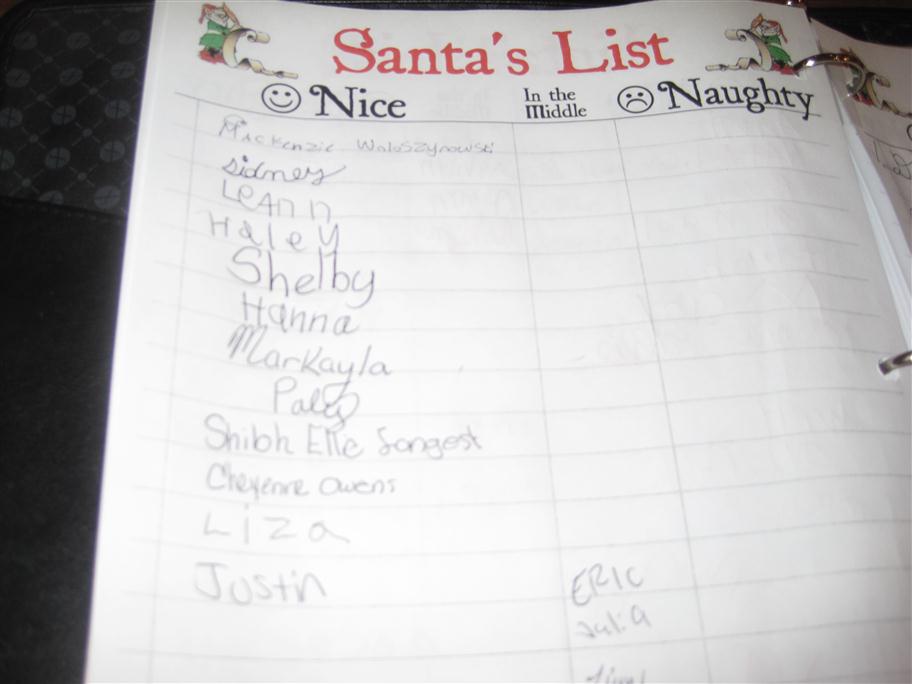 Santa's List
Nice
In the
Middle
Naughty
Mackenzie Woloszynowski
Sidney
LeAnn
Haley
Shelby
Hanna
Markayla
Shiloh Ellie Songest
Cheyenne Owens
Liza
Justin
ERIC
Julia